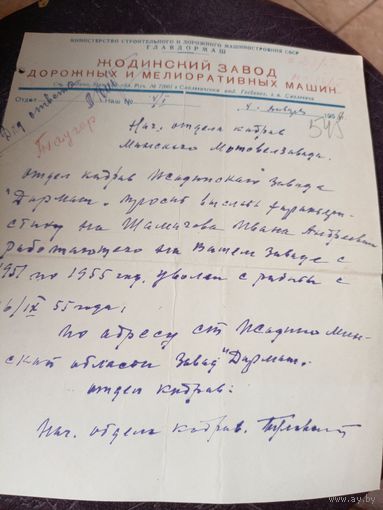 МИНИСТЕРСТВО СТРОИТЕЛЬНОГО И ДОРОЖНОГО МАШИНОСТРОЕНИЯ СССР
ГЛАВДОРМАШ
ЖОДИНСКИЙ ЗАВОД
ДОРОЖНЫХ И МЕЛИОРАТИВНЫХ МАШИН
Отдел
Наш №
195
545
Для ответа
Нач. отдела кадров
Минского Мотовелозавода.
отдел кадров Жодинского завода
"Дормаш" просит выслать характери-
стику на Шамшова Ивана Андреевича
работающего на Вашем заводе с
1951 по 1955 год, уволен с работы с
6/IX 55 года;
по адресу ст Жодино Мин-
ской области завод "Дормаш"
отдел кадров.
Нач. отдела кадров.
www.ay.by